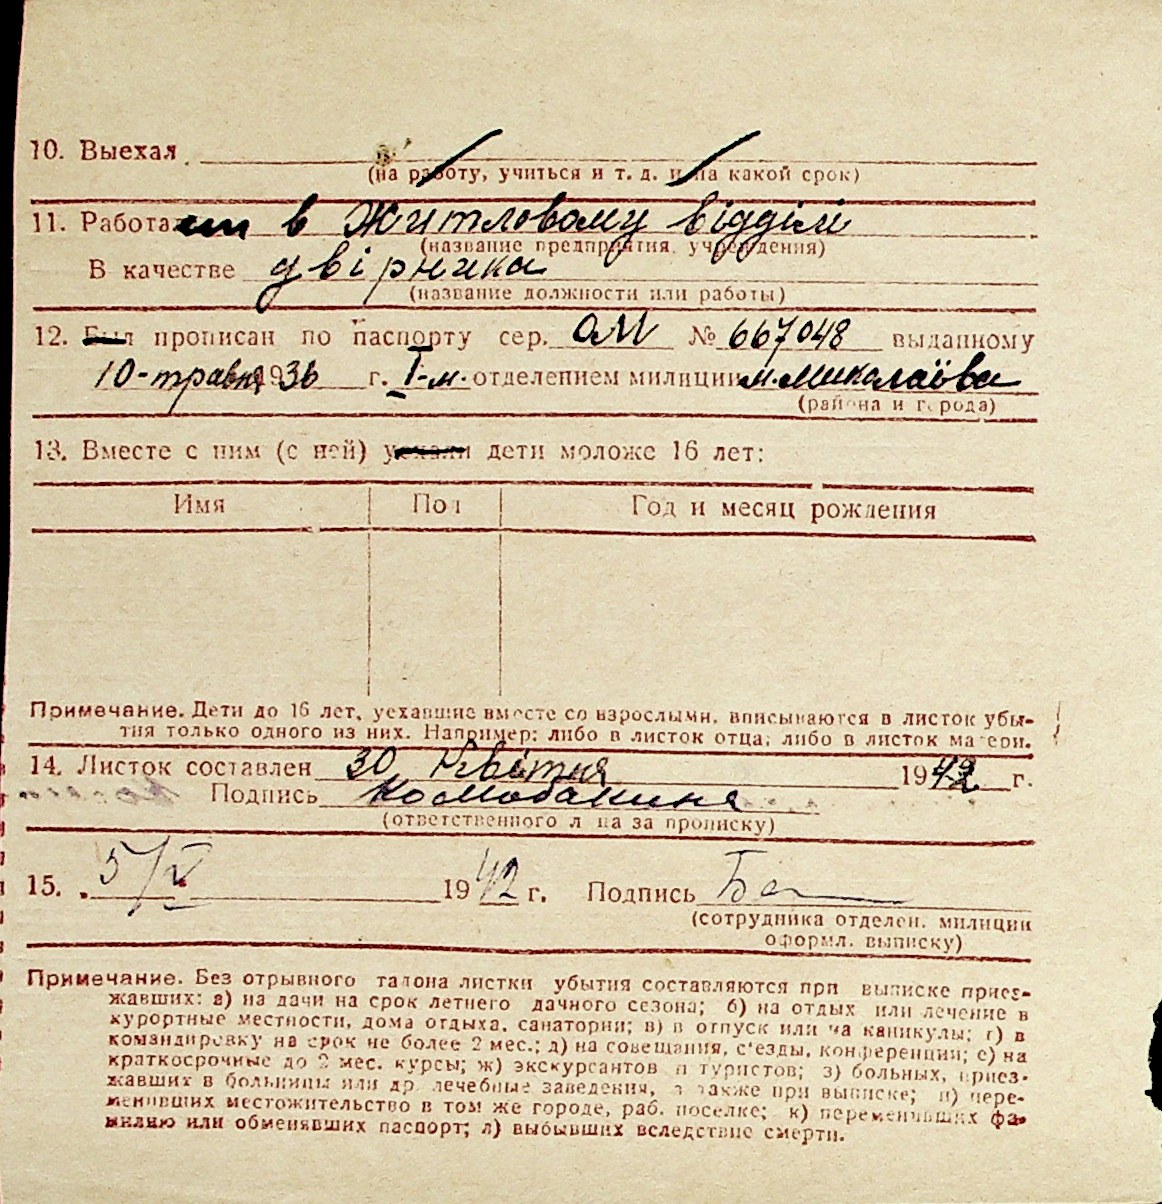 10. Выехал
(на работу, учиться и т. д. и на какой срок)
11. Работа в Житловому відділі
(название предприятия, учреждения)
В качестве двірника
(название должности или работы)
12. Был прописан по паспорту сер. ОМ № 667048 выданному
10-травня 1936 г. I-м. отделением милиции м. Миколаїва
(района и города)
13. Вместе с ним (с ней) уехали дети моложе 16 лет:
Имя Пол Год и месяц рождения
Примечание. Дети до 16 лет, уехавшие вместе со взрослыми, вписываются в листок убы-
тия только одного из них. Например: либо в листок отца, либо в листок матери.
14. Листок составлен 30 Квітня 1942 г.
Подпись
(ответственного лица за прописку)
15. 5/V 1942 г. Подпись
(сотрудника отделен. милиции
оформл. выписку)
Примечание. Без отрывного талона листки убытия составляются при выписке приез-
жавших: а) на дачи на срок летнего дачного сезона; б) на отдых или лечение в
курортные местности, дома отдыха, санатории; в) в отпуск или на каникулы; г) в
командировку на срок не более 2 мес.; д) на совещания, с'езды, конференции; е) на
краткосрочные до 2 мес. курсы; ж) экскурсантов и туристов; з) больных, приез-
жавших в больницы или др. лечебные заведения, а также при выписке; и) пере-
менивших местожительство в том же городе, раб. поселке; к) переменивших фа-
милию или обменявших паспорт; л) выбывших вследствие смерти.